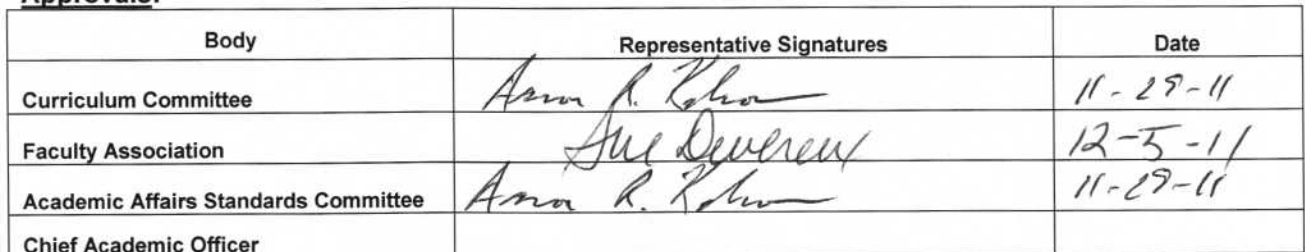 Approvals:
Body Representative Signatures Date
Curriculum Committee R. 11-29-11
Faculty Association Sue Devereux 12-5-11
Academic Affairs Standards Committee R. 11-29-11
Chief Academic Officer